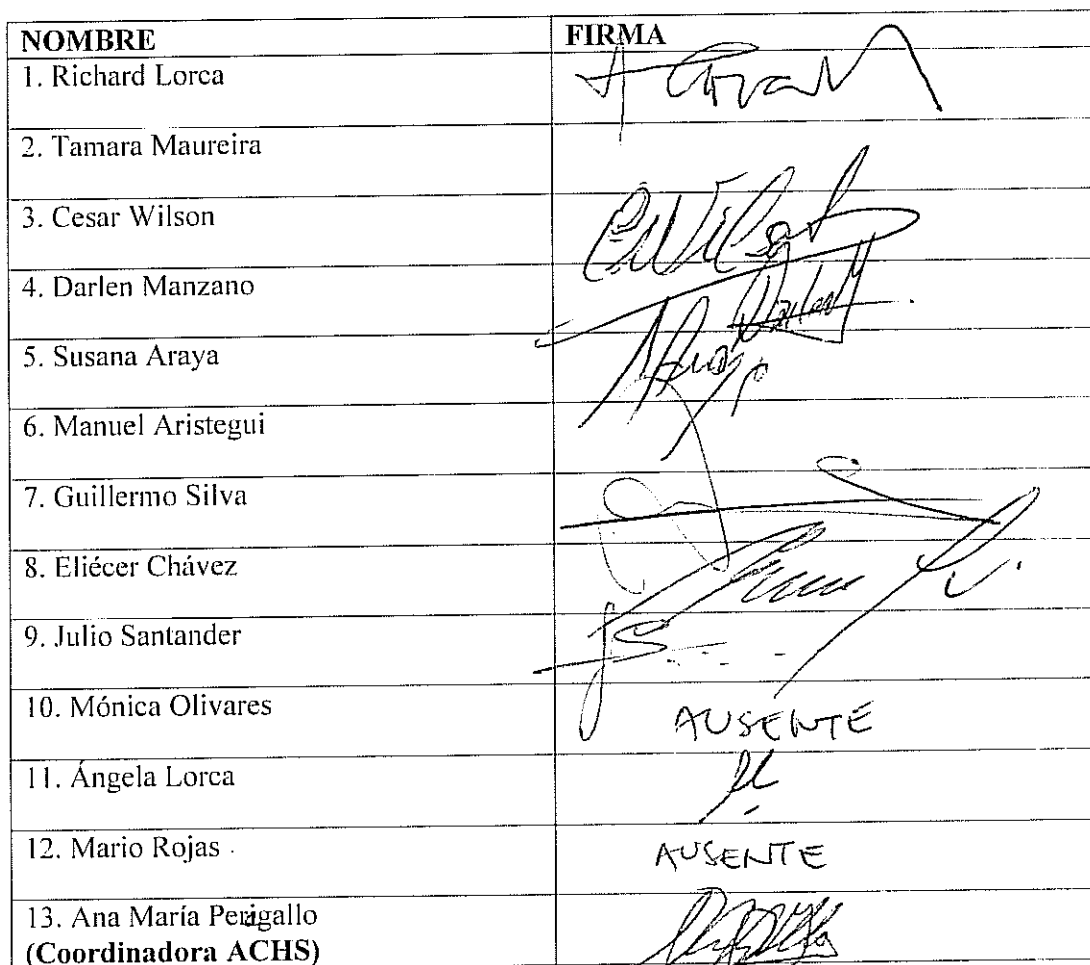 NOMBRE FIRMA
1. Richard Lorca
2. Tamara Maureira
3. Cesar Wilson
4. Darlen Manzano
5. Susana Araya
6. Manuel Aristegui
7. Guillermo Silva
8. Eliécer Chávez
9. Julio Santander
10. Mónica Olivares AUSENTE
11. Ángela Lorca
12. Mario Rojas AUSENTE
13. Ana María Perigallo
(Coordinadora ACHS)